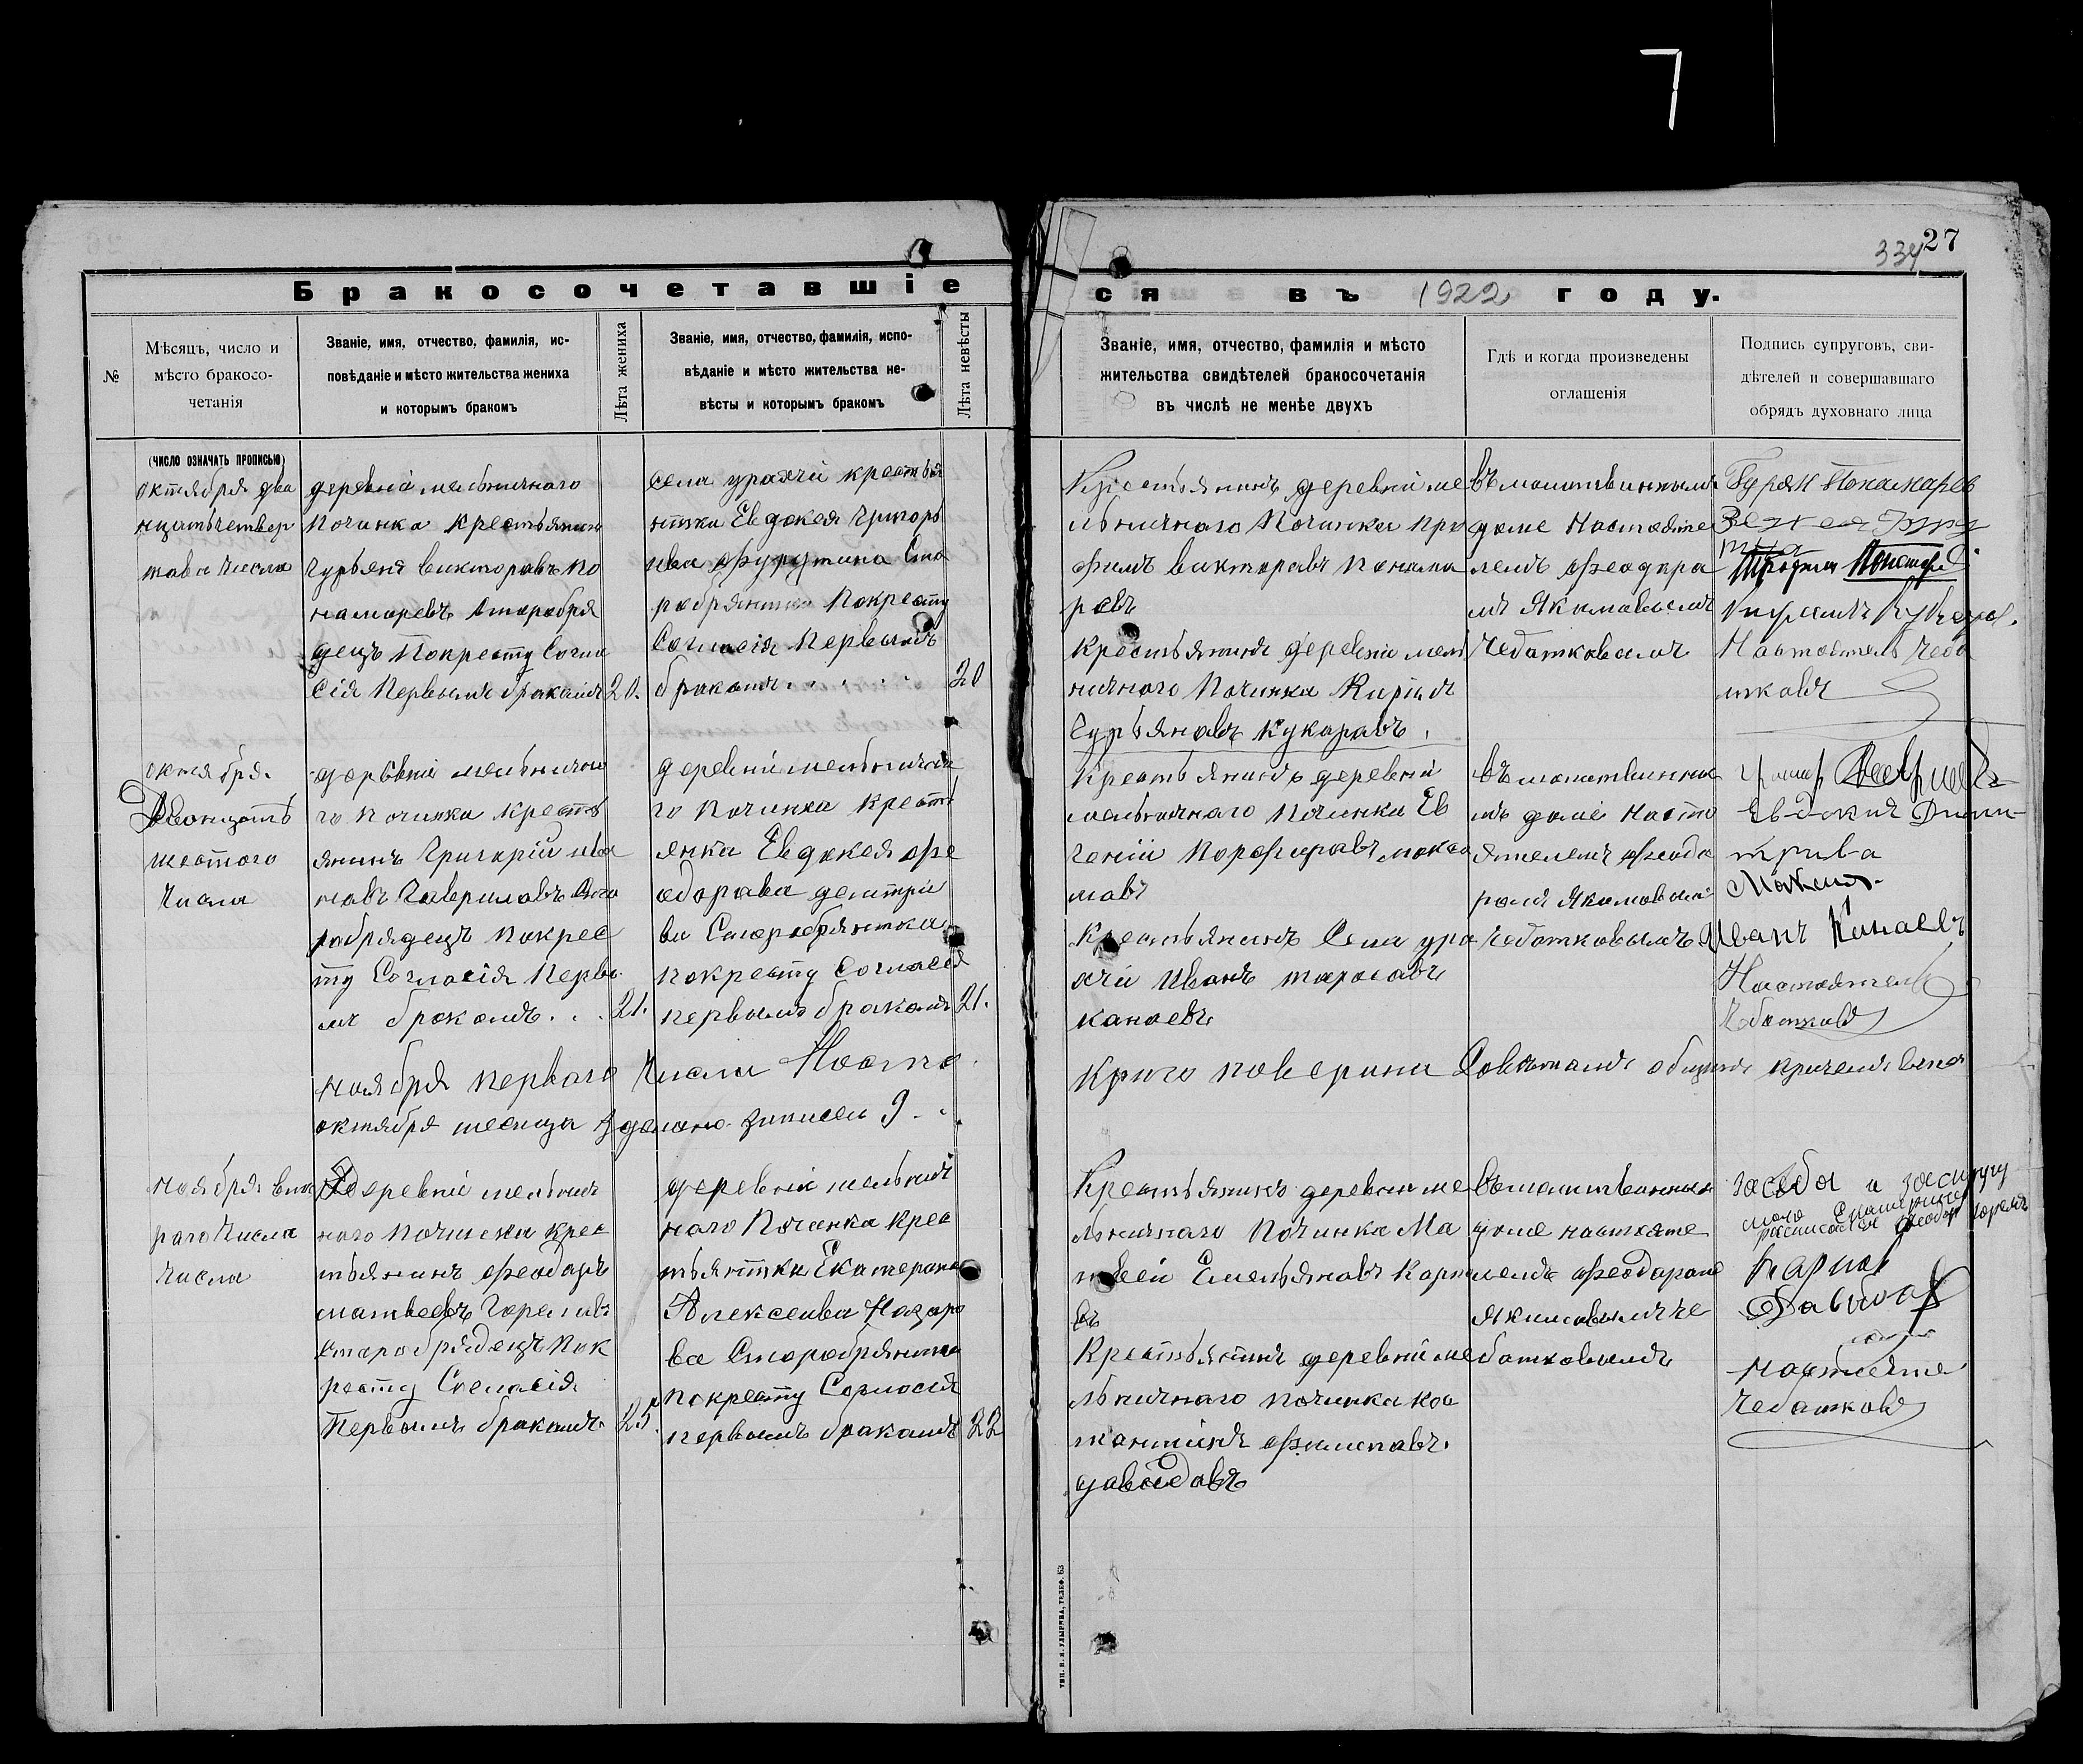 7
27
334
Бракосочетавшіе
ся въ 1922 году.
№
Мѣсяцъ, число и
мѣсто бракосо-
четанія
Званіе, имя, отчество, фамилія, ис-
повѣданіе и мѣсто жительства жениха
и которымъ бракомъ
Лѣта жениха
Званіе, имя, отчество, фамилія, испо-
вѣданіе и мѣсто жительства не-
вѣсты и которымъ бракомъ
Лѣта невѣсты
Званіе, имя, отчество, фамилія и мѣсто
жительства свидѣтелей бракосочетанія
въ числѣ не менѣе двухъ
Гдѣ и когда произведены
оглашенія
Подпись супруговъ, сви-
дѣтелей и совершавшаго
обрядъ духовнаго лица
(число означать прописью)
октября два
нцатьчетвер
тава числа
деревни мельничного
Починка крестьянин
Гурьянъ викторавъ по
намаревъ старобря
децъ Покресту Согла
сія Первымъ бракамъ
20.
села уряхчи крестья
нтка Евдокея григорь
ива фурутина Ста
робрянтка Покресту
Согласія Первымъ
бракамъ
20
Крестьянинъ деревни ме
льничного Починка Про
фимъ викторавъ понама
ревъ
Крестьянинъ деревни мель
ничного Починка Кирилъ
Гурьянавъ Кукаравъ
въ малитвинымъ
доме Настояте
лемъ феодора
мъ Якимавымъ
Чебатковымъ
Гурян Понамарев
Настоятель Чеба
тковъ
октября
Двонцать
шестого
числа
деревни мельнично
го починка кресть
янинъ Григорій ива
навъ Гавриловъ Ста
робрядецъ покрес
ту Согласія Первы
мъ бракомъ
21.
деревни мельнична
го починка кресть
янка Евдокея фе
одорава демтри
ва Старобрянтка
покресту Согласія
первымъ бракамъ
21.
Крестьянинъ деревни
мельничного Починка Ев
гений Порфиравъ макси
мавъ
Крестьянинъ Села уря
хчи Иванъ тарасавъ
канаевъ
въ малитвинна
мъ доме Насто
ятелемъ феодо
ромъ Якимовым
Чебатковымъ
Евдокия Дими
трива
Максим.
Иванъ Канаевъ
Настоятель
Чебатковъ
ноября первого числа Насто
октября месица зделано записеи 9
Крыго поверина Советамъ общины
ноября вто
рого числа
числа
Деревни мельнич
ного починка крес
тьянинъ феодаръ
матвеевъ Гореловъ
старобрядецъ Пок
ресту Согласія
Первымъ бракамъ
25.
деревни мельнич
ного Починка крес
тьянтка Екатерина
Алексеива Назаро
ва Старобрянтка
покресту Согласія
первымъ бракамъ
22
Крестьянинъ деревни ме
льничного Починка Ма
твеи Емельянавъ Карпа
въ
Крестьянинъ деревни ме
льничного починка кос
тантинъ филипавъ
давыдавъ
въ малитвинном
доме настояте
лемъ феодарам
якимавымъ че
батковымъ
засебя и засупругу
мою Екатерину
расписался Феодор Горелъ
Карпов
Давыдов
настояте
Чебатковъ